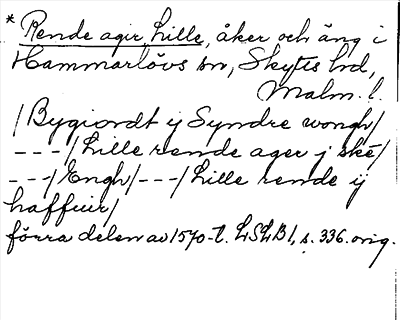 * Rende ager, Lille, åker och äng i
Hammarlövs sn, Skytts hd,
Malm. l.
/Bygiordt ij Syndre wongh/
---/Lille rende ager j ské/
---/Engh/---/Lille rende ij
haffuir/
förra delen av 1570-t. LSLB 1, s. 336. orig.